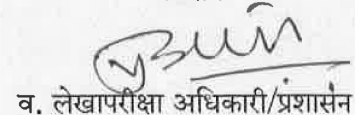 व. लेखापरीक्षा अधिकारी/प्रशासन